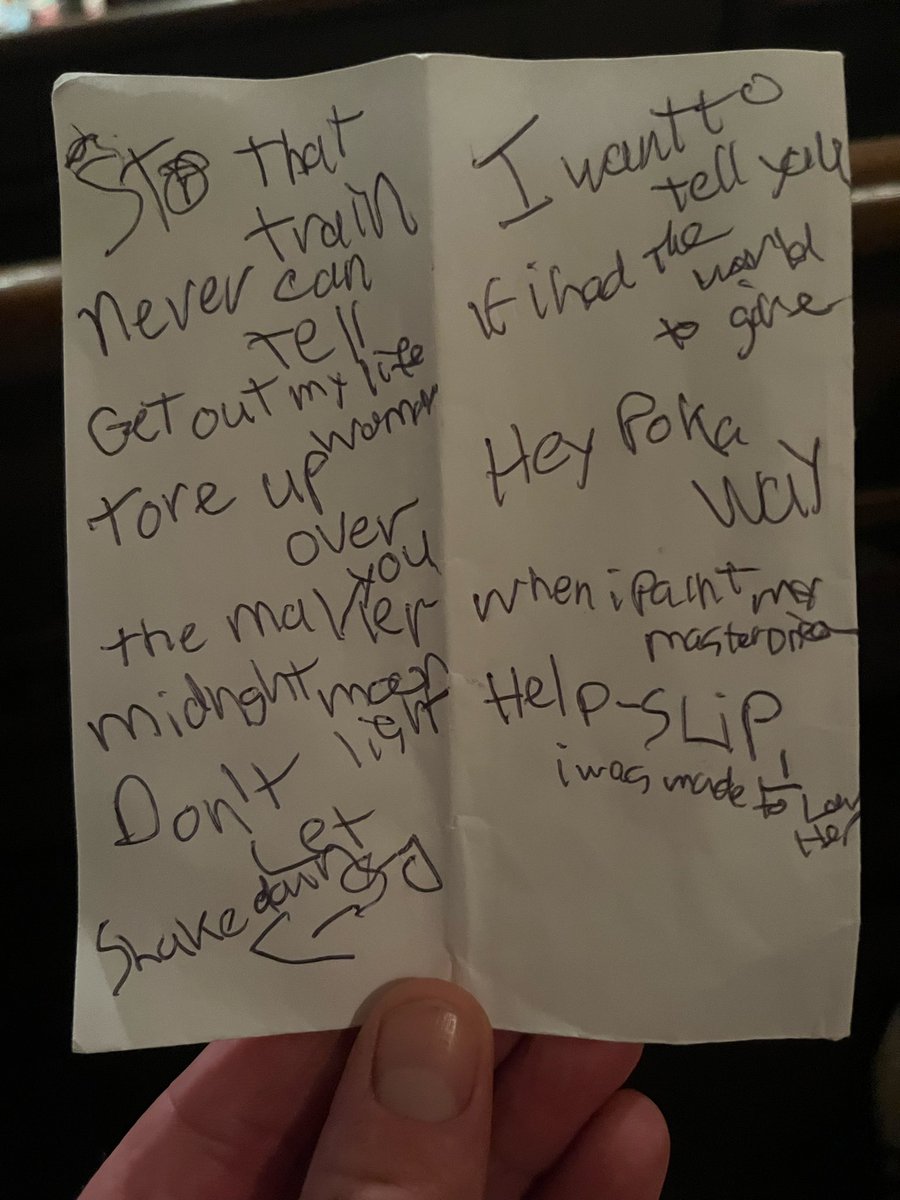 Stop that
train
never can
tell
Get out my life
woman
tore up
over
you
the maker
midnght moon
light
Don't
Let
go
Shakedown
I want to
tell you
if i had the
world
to give
Hey Poka
way
when i Paint my
master
Help-SLiP
i was made to Lov
Her